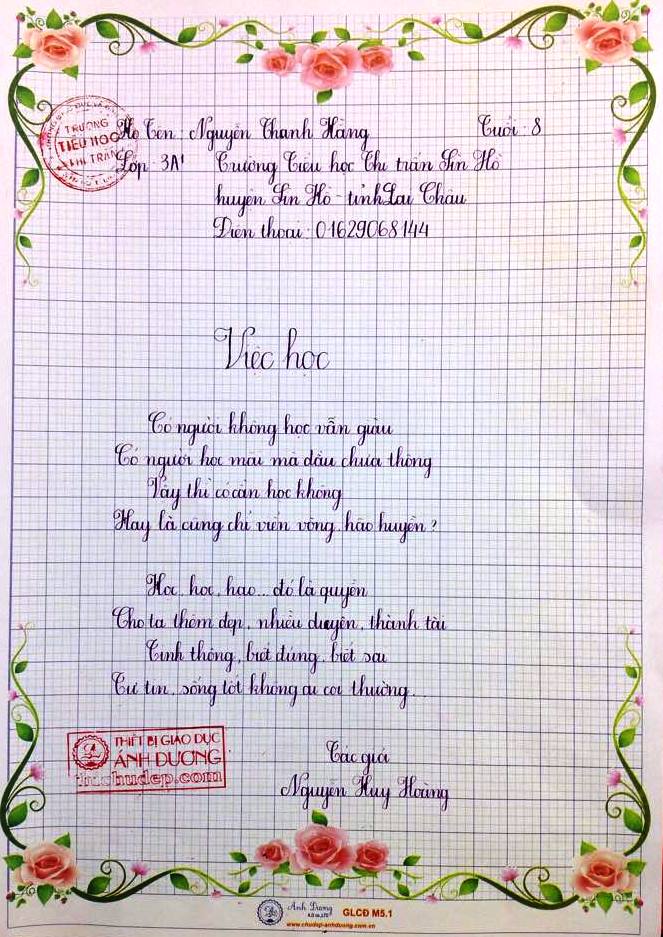 Họ Tên: Nguyễn Thanh Hằng Tuổi: 8
Lớp: 3A1 Trường Tiểu học Thị trấn Sìn Hồ
huyện Sìn Hồ - tỉnh Lai Châu
Điện thoại: 01629068144
TRƯỜNG
TIỂU HỌC
THỊ TRẤN
Việc học
Có người không học vẫn giàu
Có người học mãi mà đâu chưa thông
Vậy thì có cần học không
Hay là cũng chỉ viển vông, hão huyền?
Học, học, học... đó là quyền
Cho ta thêm đẹp, nhiều duyên, thành tài
Tinh thông, biết đúng, biết sai
Tự tin, sống tốt không ai coi thường...
Tác giả
Nguyễn Huy Hoàng
THIẾT BỊ GIÁO DỤC
ÁNH DƯƠNG
Ánh Dương
GLCĐ M5.1
www.chudep-anhduong.com.vn